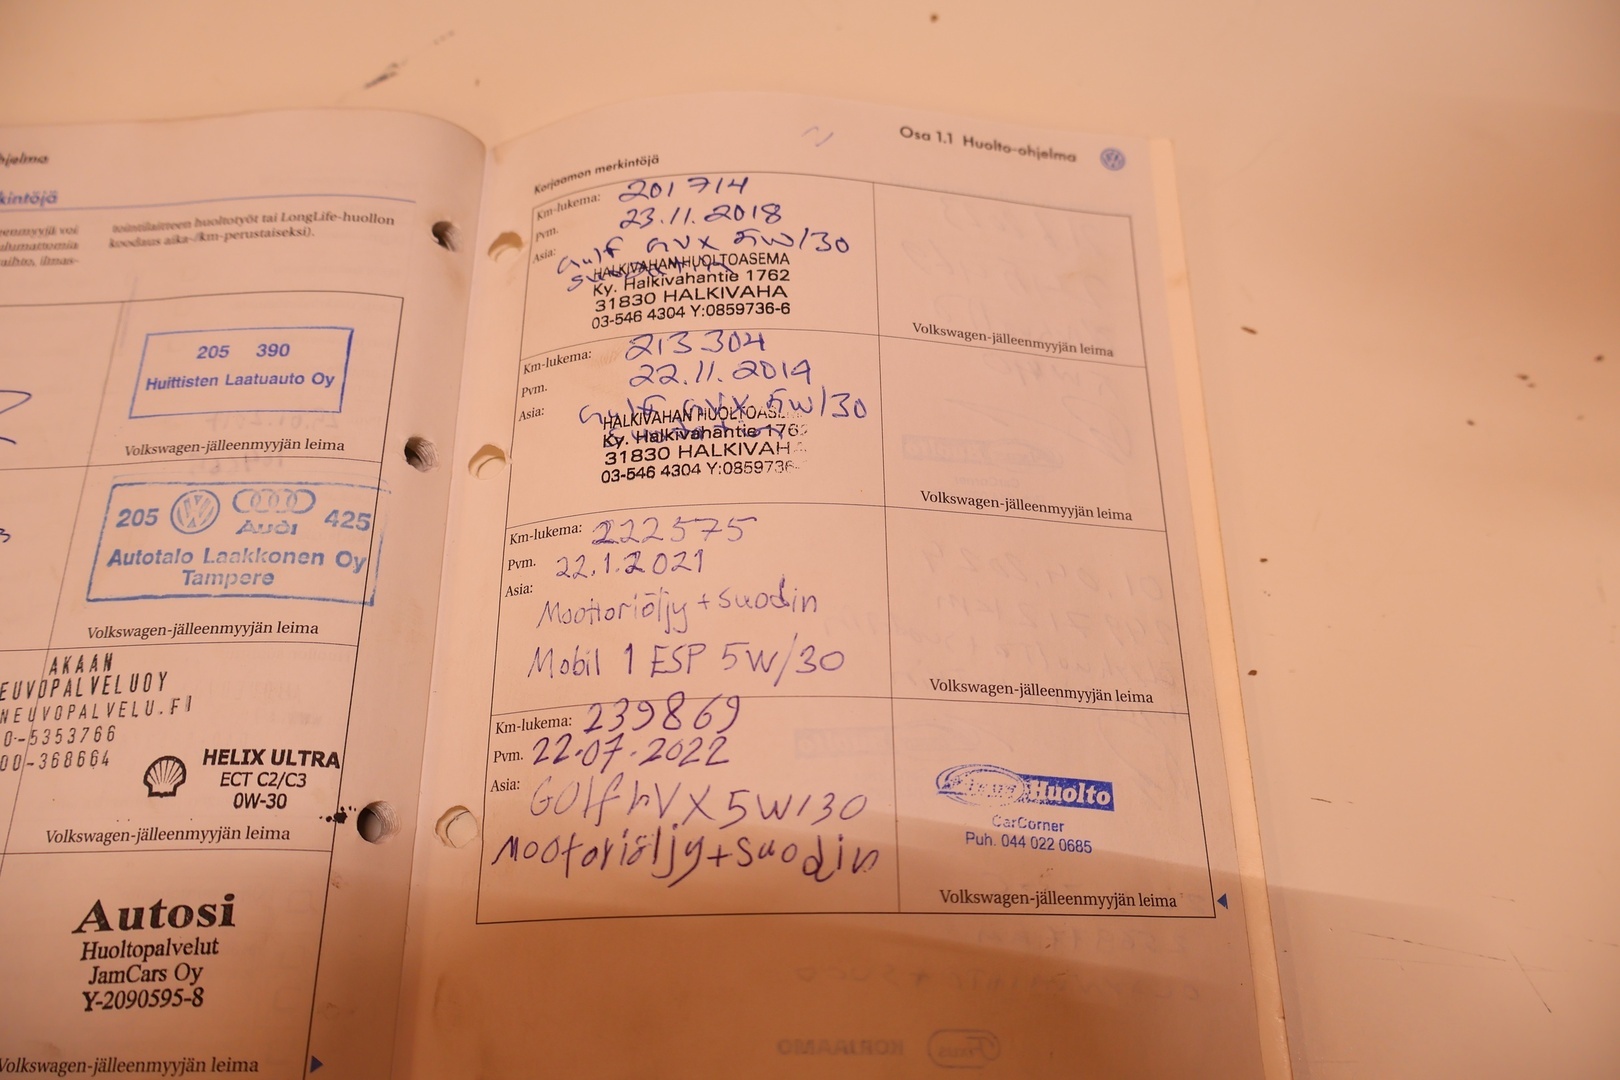 merkintöjä
tointilaitteen huoltotyöt tai LongLife-huollon
koodaus aika-/km-perustaiseksi).
205 390
Huittisten Laatuauto Oy
Volkswagen-jälleenmyyjän leima
205 Audi 425
Autotalo Laakkonen Oy
Tampere
Volkswagen-jälleenmyyjän leima
AKAAN
EUVOPALVELUOY
NEUVOPALVELU.FI
0-5353766
00-368664
HELIX ULTRA
ECT C2/C3
0W-30
Volkswagen-jälleenmyyjän leima
Autosi
Huoltopalvelut
JamCars Oy
Y-2090595-8
Volkswagen-jälleenmyyjän leima
Osa 1.1 Huolto-ohjelma
Korjaamon merkintöjä
Km-lukema: 201714
Pvm. 23.11.2018
Asia: Gulf 5W/30
HALKIVAHAN HUOLTOASEMA
Ky. Halkivahantie 1762
31830 HALKIVAHA
03-546 4304 Y:0859736-6
Volkswagen-jälleenmyyjän leima
Km-lukema: 213304
Pvm. 22.11.2019
Asia: Gulf 5W/30
HALKIVAHAN HUOLTOASE
Ky. Halkivahantie 176
31830 HALKIVAH
03-546 4304 Y:0859736-
Volkswagen-jälleenmyyjän leima
Km-lukema: 222575
Pvm. 22.1.2021
Asia:
Moottoriöljy + suodin
Mobil 1 ESP 5W/30
Volkswagen-jälleenmyyjän leima
Km-lukema: 239869
Pvm. 22.07.2022
Asia: GOlf hVX 5W/30
Mootoriöljy + suodin
Huolto
CarCorner
Puh. 044 022 0685
Volkswagen-jälleenmyyjän leima